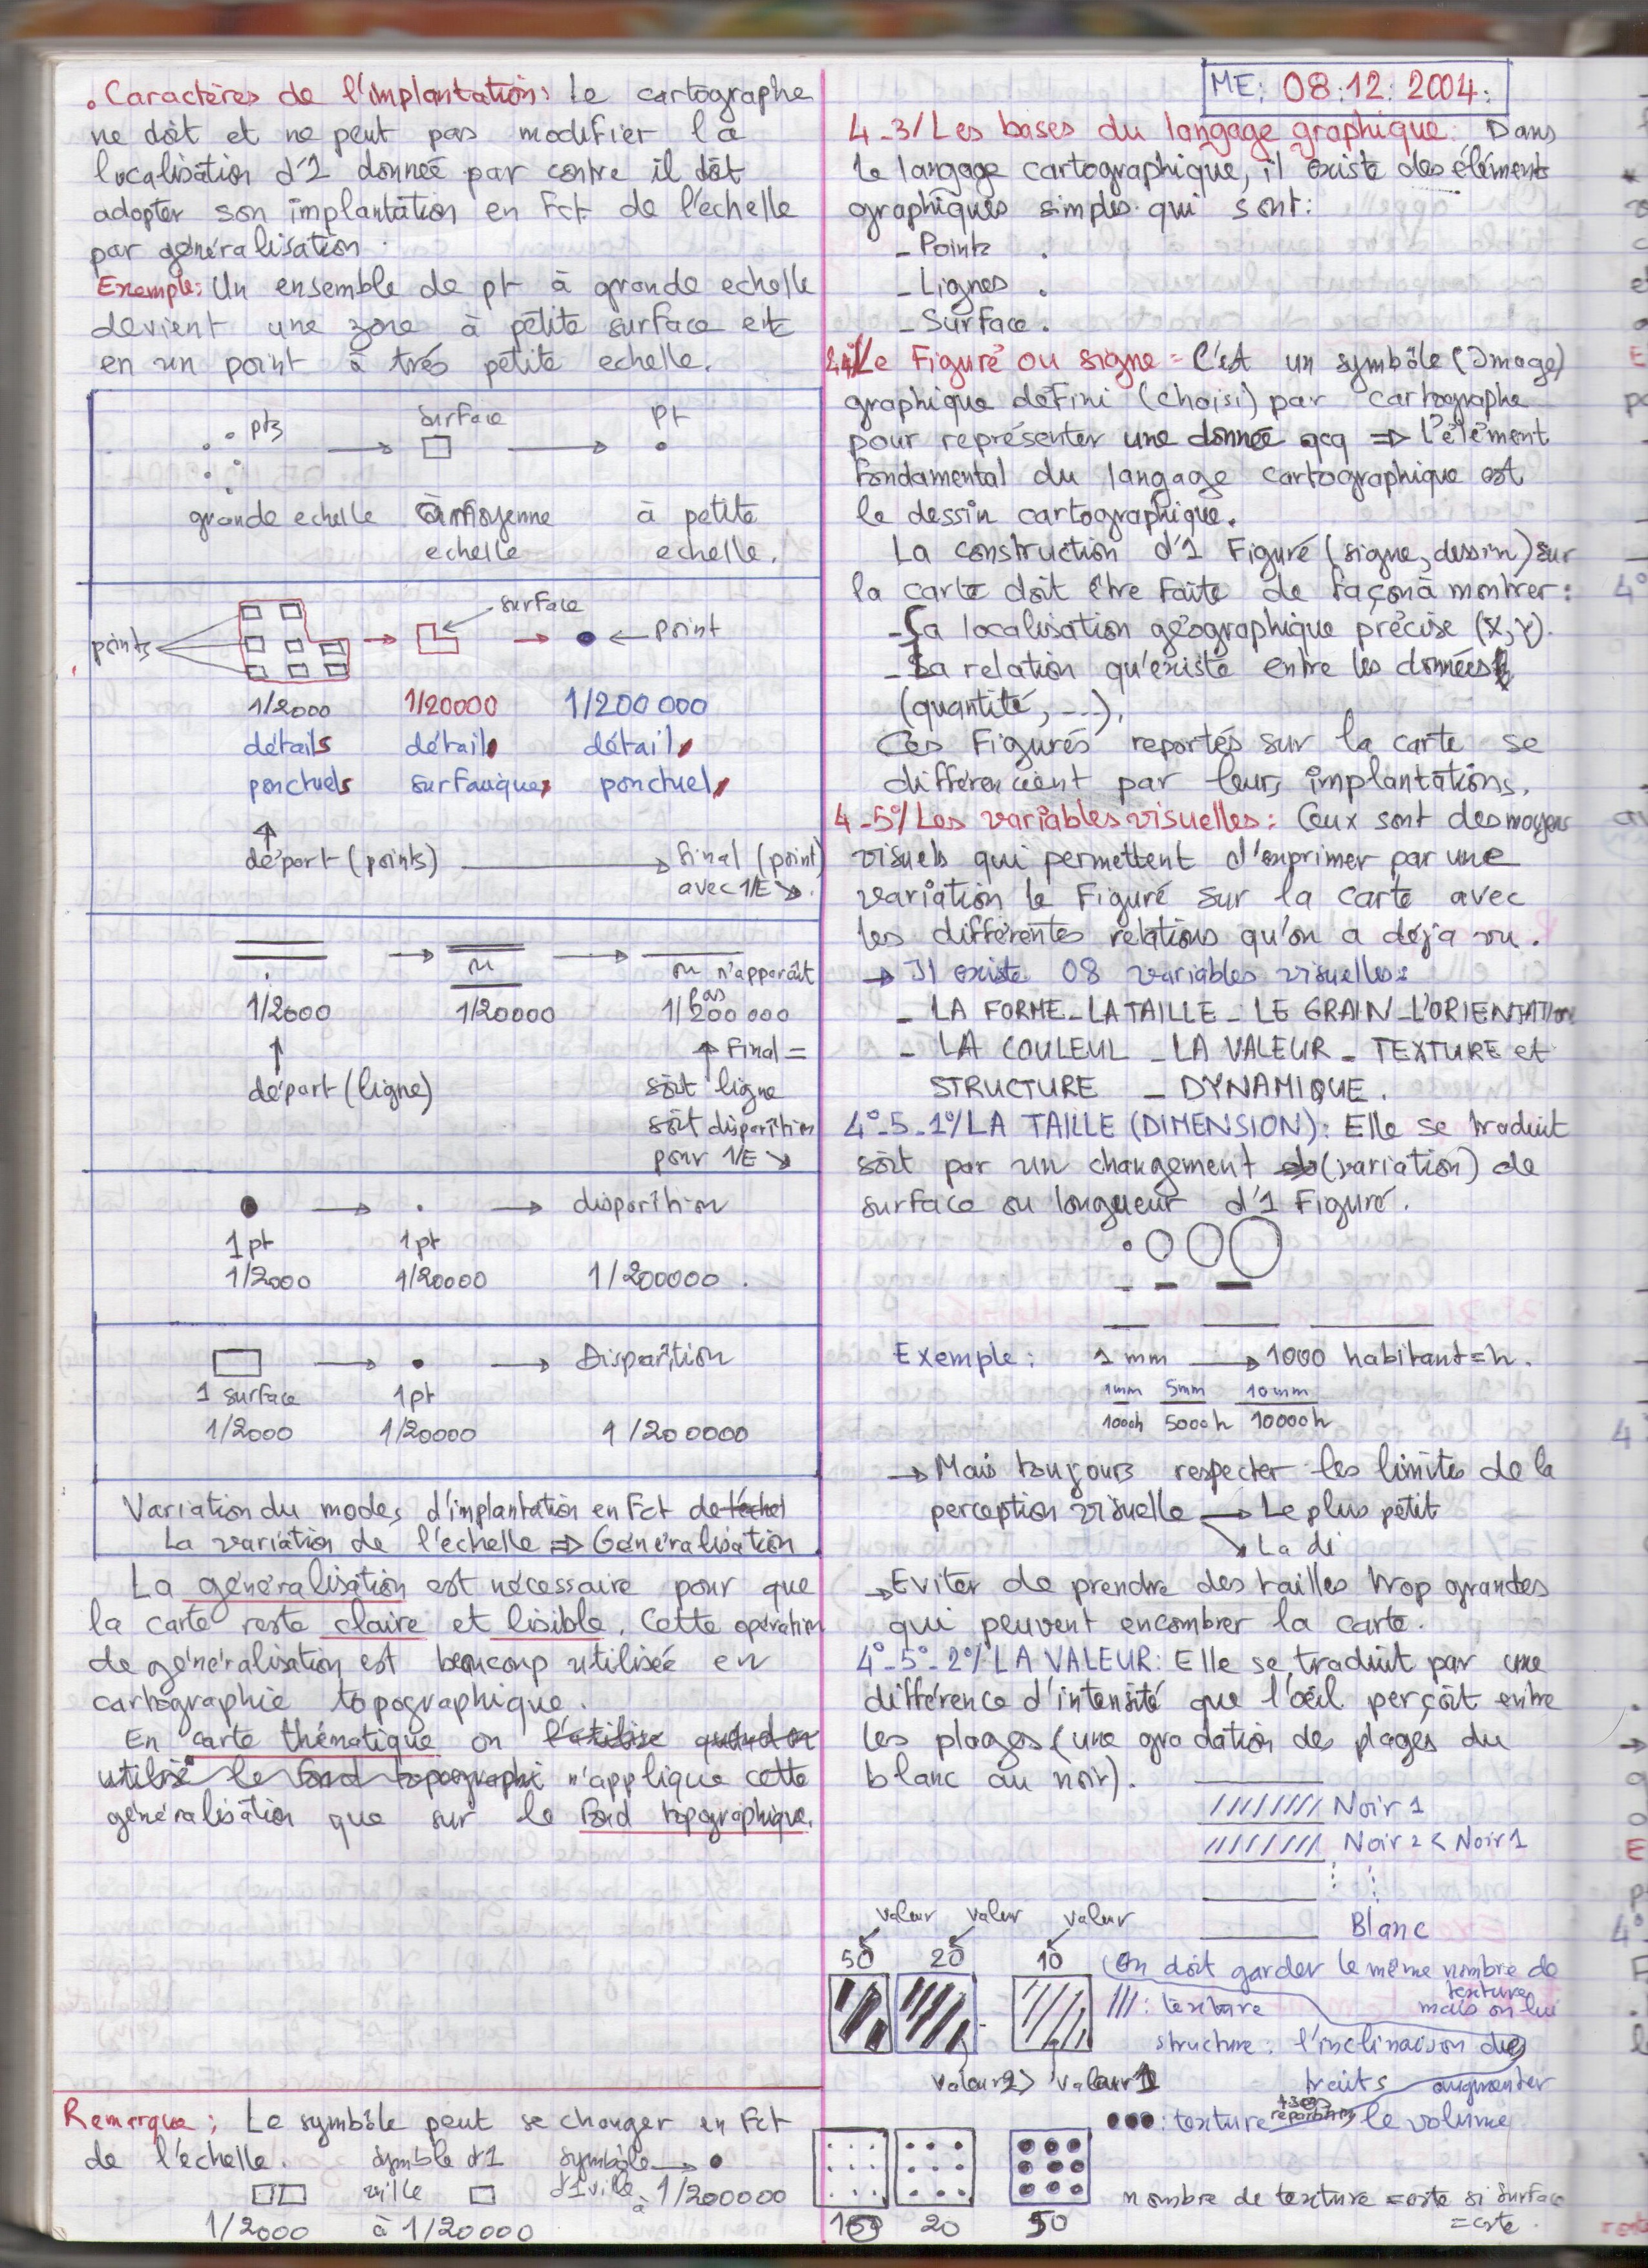 . Caractères de l'implantation: Le cartographe
ne doît et ne peut pas modifier la
localisation d'1 donneé par contre il doît
adopter son implantation en Fct de l'échelle
par généralisation.
Exemple: Un ensemble de pt à grande echelle
devient une zone à pétite surface etc
en un point à trés petite echelle.
pts surface pt
grande echelle à moyenne à petite
echelle echelle.
surface
points point
1/2000 1/20000 1/200 000
détails détail détail
ponctuels surfacique ponctuel
départ (points) final (point)
avec 1/E ↘.
m m n'apparaît
pas
1/2000 1/20000 1/200 000
départ (ligne) Final =
soit ligne
soit disparition
pour 1/E ↘
disparition
1 pt 1 pt
1/2000 1/20000 1/200000.
Disparition
1 surface 1 pt
1/2000 1/20000 1/200000
Variation du modes d'implantation en Fct de l'échel
La variation de l'échelle => Généralisation
La généralisation est nécessaire pour que
la carte reste claire et lisible. Cette opération
de généralisation est beaucoup utilisée en
cartographie topographique.
En carte thématique on l'utilise quand on
utilise le fond topographi n'applique cette
généralisation que sur le fond topographique.
Remarque: Le symbôle peut se changer en Fct
de l'échelle. symbole d'1 symbôle → •
ville d'1 ville à 1/200000
1/2000 à 1/20000
ME: 08.12.2004.
4-3/ Les bases du langage graphique: Dans
le langage cartographique, il existe des élément
graphiques simples qui sont:
- Points.
- Lignes.
- Surface.
4-4/ Le Figuré ou signe = C'est un symbôle (Image)
graphique défini (choisi) par cartographe
pour représenter une donneé qcq => L'élément
fondamental du langage cartographique est
le dessin cartographique.
La construction d'1 Figuré (signe, dessin) sur
la carte doit être faite de façon à montrer:
- Sa localisation géographique précise (X, Y).
- La relation qu'existe entre les données
(quantité, ...).
Ces Figurés reportés sur la carte se
différencient par leurs implantations.
4-5°/ Les variables visuelles: Ceux sont des moyens
visuels qui permettent d'exprimer par une
variation le Figuré sur la carte avec
les différentes relations qu'on a déja vu.
→ Il existe 08 variables visuelles:
- LA FORME - LA TAILLE - LE GRAIN - L'ORIENTATION
- LA COULEUL - LA VALEUR - TEXTURE et
STRUCTURE - DYNAMIQUE.
4°-5-1°/ LA TAILLE (DIMENSION): Elle se traduit
soit par un changement (variation) de
surface ou longueur d'1 Figuré.
Exemple: 1 mm → 1000 habitant = h.
1mm 5mm 10mm
1000h 5000h 10000h
→ Mais toujours respecter les limites de la
perception visuelle → Le plus pétit
↘ La di
→ Eviter de prendre des tailles trop grandes
qui peuvent encombrer la carte.
4°-5°-2°/ LA VALEUR: Elle se traduit par une
différence d'intensité que l'oeil perçoit entre
les plages (une gradation des plages du
blanc au noir).
Noir 1
Noir 2 < Noir 1
Blanc
valeur valeur valeur
50 20 10
On doit garder le même nombre de
texture
/// : texture mais on lui
structure: l'inclinaison des
traits augmenter
valeur2 > valeur1
••• : texture le volume
nombre de texture = cste si surface
= cste.
20 50